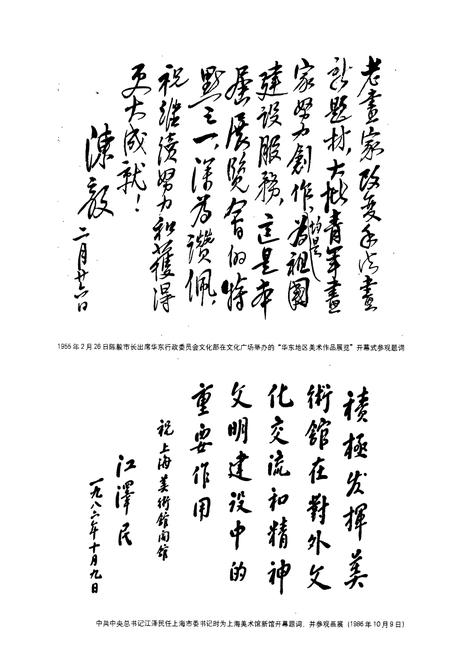 老畫家改变手法畫
新題材，大批青年畫
家努力創作，均是为祖國
建設服務，這是本
屆展覽會的特
點之一，深为讚佩，
祝继续努力和獲得
更大成就！
陳毅
二月廿六日
1955年2月26日陈毅市长出席华东行政委员会文化部在文化广场举办的“华东地区美术作品展览”开幕式参观题词
積極发揮美
術館在對外文
化交流和精神
文明建设中的
重要作用
祝上海美術館開館
江澤民
一九八六年十月九日
中共中央总书记江泽民任上海市委书记时为上海美术馆新馆开幕题词，并参观画展（1986年10月9日）